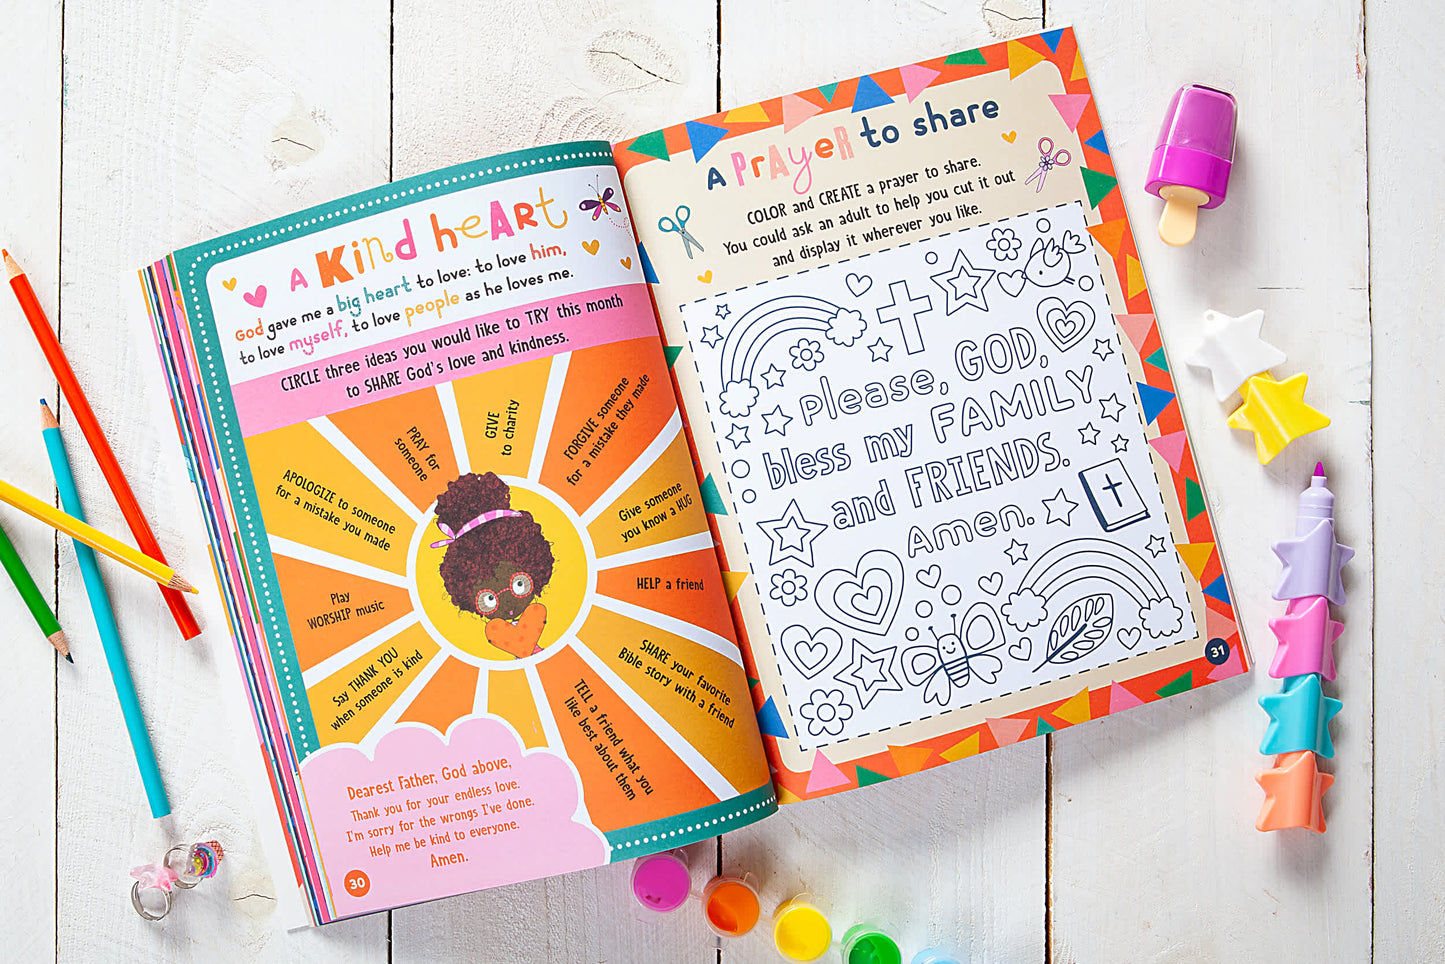 A Kind heart
God gave me a big heart to love: to love him,
to love myself, to love people as he loves me.
CIRCLE three ideas you would like to TRY this month
to SHARE God's love and kindness.
PRAY for
someone
GIVE
to charity
FORGIVE someone
for a mistake they made
Give someone
you know a HUG
HELP a friend
SHARE your favorite
Bible story with a friend
TELL a friend what you
like best about them
Say THANK YOU
when someone is kind
Play
WORSHIP music
APOLOGIZE to someone
for a mistake you made
Dearest Father, God above,
Thank you for your endless love.
I'm sorry for the wrongs I've done.
Help me be kind to everyone.
Amen.
30
A PrAyeR to share
COLOR and CREATE a prayer to share.
You could ask an adult to help you cut it out
and display it wherever you like.
Please, GOD,
bless my FAMILY
and FRIENDS.
Amen.
31